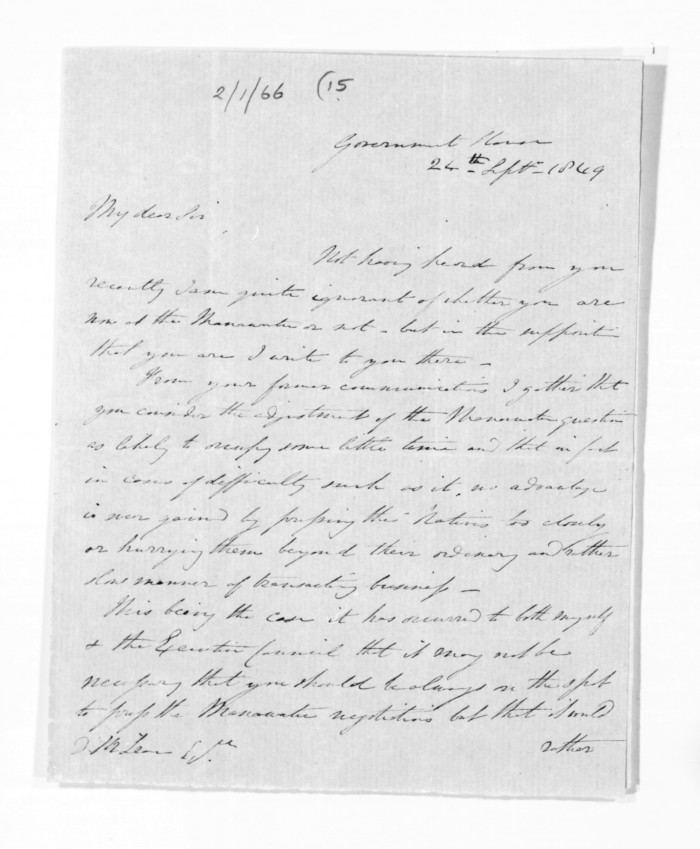 2/1/66 (15
Government House
24th Septr 1849
My dear Sir,
Not having heard from you
recently I am quite ignorant of whether you are
now at the Manawatu or not - but in the supposition
that you are I write to you there -
From your former communications I gather that
you consider the adjustment of the Manawatu question
as likely to occupy some little time and that in fact
in cases of difficulty such as it, no advantage
is ever gained by pressing the Natives too closely
or hurrying them beyond their ordinary and rather
slow manner of transacting business -
This being the case it has occurred to both myself
& the Executive Council that it may not be
necessary that you should be always on the spot
to press the Manawatu negotiations but that it would
D. McLean Esqre
rather